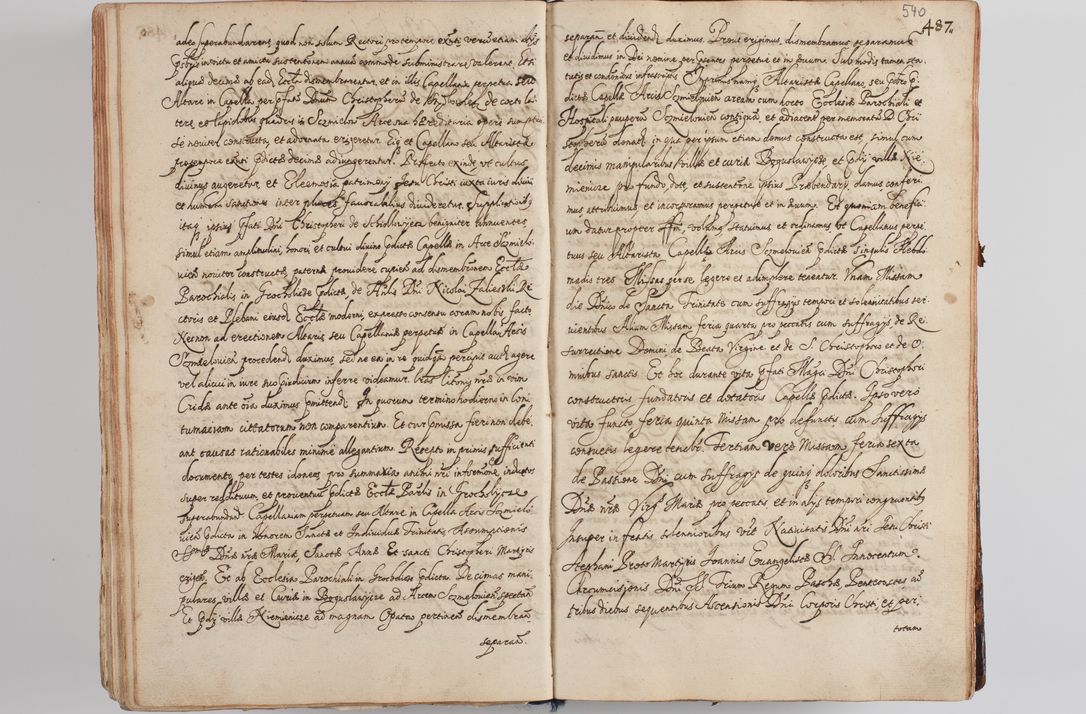 adeo superabundarent, quod non solum Rectori pro tempore exnti verum etiam alijs
pptris in victu et amictu sustentationem annuam commode subministrare valerent, Et si
aliquae decimae ab ead. Eccla dismembrarentur, et in illis Capellania perpetua seu
Altare in Capella per pfatum Dnum Christopherum de
tere, et lapidibus quadris in Szmielow Arce sua haereditaria opere sumptuo
se noviter constructa, et adornata erigeretur. Eiq et Capellano seu Altaristae
pro tempore exnti pdictae decimae adiungerentur. Profecto exinde et cultus
divinus augeretur, et Eleemosia patrimonij Jesu Christi iuxta iuris divini
et humani sanctiones inter plures favorabilius divideretur. Supplicationibq
itaq ipsius pfati Dni Christopheri de benigniter annuentes
simul etiam amplitudini, honori et cultui divino pdictae Capellae in Arce Szmielo-
vien noviter constructae, paterne providere cupientes ad dismembrationem Ecclae
Parochialis in Grocholice pdictae, de Hnbis Dni Nicolai Zalieski Re
ctoris et Plebani eiusd Ecclae moderni, expresso consensu coram nobis facto
Necnon ad erectionem Altaris seu Capellaniae perpetuae in Capella Arcis
Szmielovien procedendum duximus, sed ne ea in re quidqm perperam agere
vel alicui in iure suo praeiudicium inferre videamur. Lras Citonis nrae in vim
Cridae ante oia duximus pmittend. In quorum termino hodierno in Con
tumaciam citatorum non comparentium. Et cur pmissa fieri non debe
ant causas rationabiles minime allegantium. Recepta in primis sufficienti
documento, per testes idoneos pro summaria animi nri informone, inductos
super reddituum, et proventuum pdictae Ecclae Parlis in Grocholyce
superabundan Capellaniam perpetuam seu Altare in Capella Arcis Szmielo
vien pdicta in honorem Sanctae et Individuae Trinitatis, Assumptionis
Dnae nrae Mariae, Sanctae Annae, Et sancti Cristopheri Martyris
erigen. Et ab Ecclesia Parochiali in Grocholice pdicta Decimas mani
pulares, villae et Curiae in Boguslawyce ad Arcem Szmelovien spectan
Et pdij villae Niemienicze ad magnam Opatow pertinen dismembran
separan.

540
487.
separan. et dividend. duximus. Prout erigimus, dismembramus separamus
et dividimus in Dei nomine per pntes perpetue et in aevum. Sub modis tamen sta
tutis et conditionibus infrascriptis. Altaristae Capellano, seu pptro p
dictae Capellae Arcis Szmielovien aream cum horto Ecclesiae Parochiali et
Hospitali pauperum Szmielovien contiguam et adiacent per memoratum D. Chri
stopherum donatam, in qua per ipsum etiam domus constructa est, simul cum
decimis manipularibus villae et curiae Boguslawyce et pdij villae Nie
mienicze pro fundo, dote, et sustentatione ipsius Praebendarij, damus conferi
mus attribuimus et incorporamus perpetue et in aevum. Et quoniam benefici
um datur propter offm, volumus statuimus et ordinamus, ut Capellanus perpe
tuus seu Altarista Capellae Arcis Szmelovien pdictae singulis Hebdo
madis tres Missas per se legere et adimplere teneatur. Unam Missam
die Dnico de Sancta Trinitate cum suffragijs tempori et solennitatibus ser
vientibus Aliam Missam feria quarta pro peccatis cum suffragijs, de Re
surrectione Domini de Beata Virgine et de S. Christophoro et de O
mnibus sanctis. Et hoc durante vita pfati Magci Dni Christopheri
constructoris fundatoris et dotatoris Capellae pdictae. Ipso vero
vita functo feria quinta Missam pro defunctis cum suffragijs
consuetis legere tenebr. Tertiam vero Missam feria sexta
de Passione Dni cum suffragijs de quinq doloribus Sanctissimae
Dnae nrae Virgs Mariae pro peccatis et in alijs tempori congruentibq
Insuper in festis solennioribus vidt Nativitatis Dni nri Jesu Christi
Stephani Protomartyris Joannis Evangelistae SS. Innocentum
Circumcisionis Dni SS. Trium Regum Paschae Pentecostes cu
tribus diebus sequentibus Ascensionis Dni Corporis Christi, et per
totam